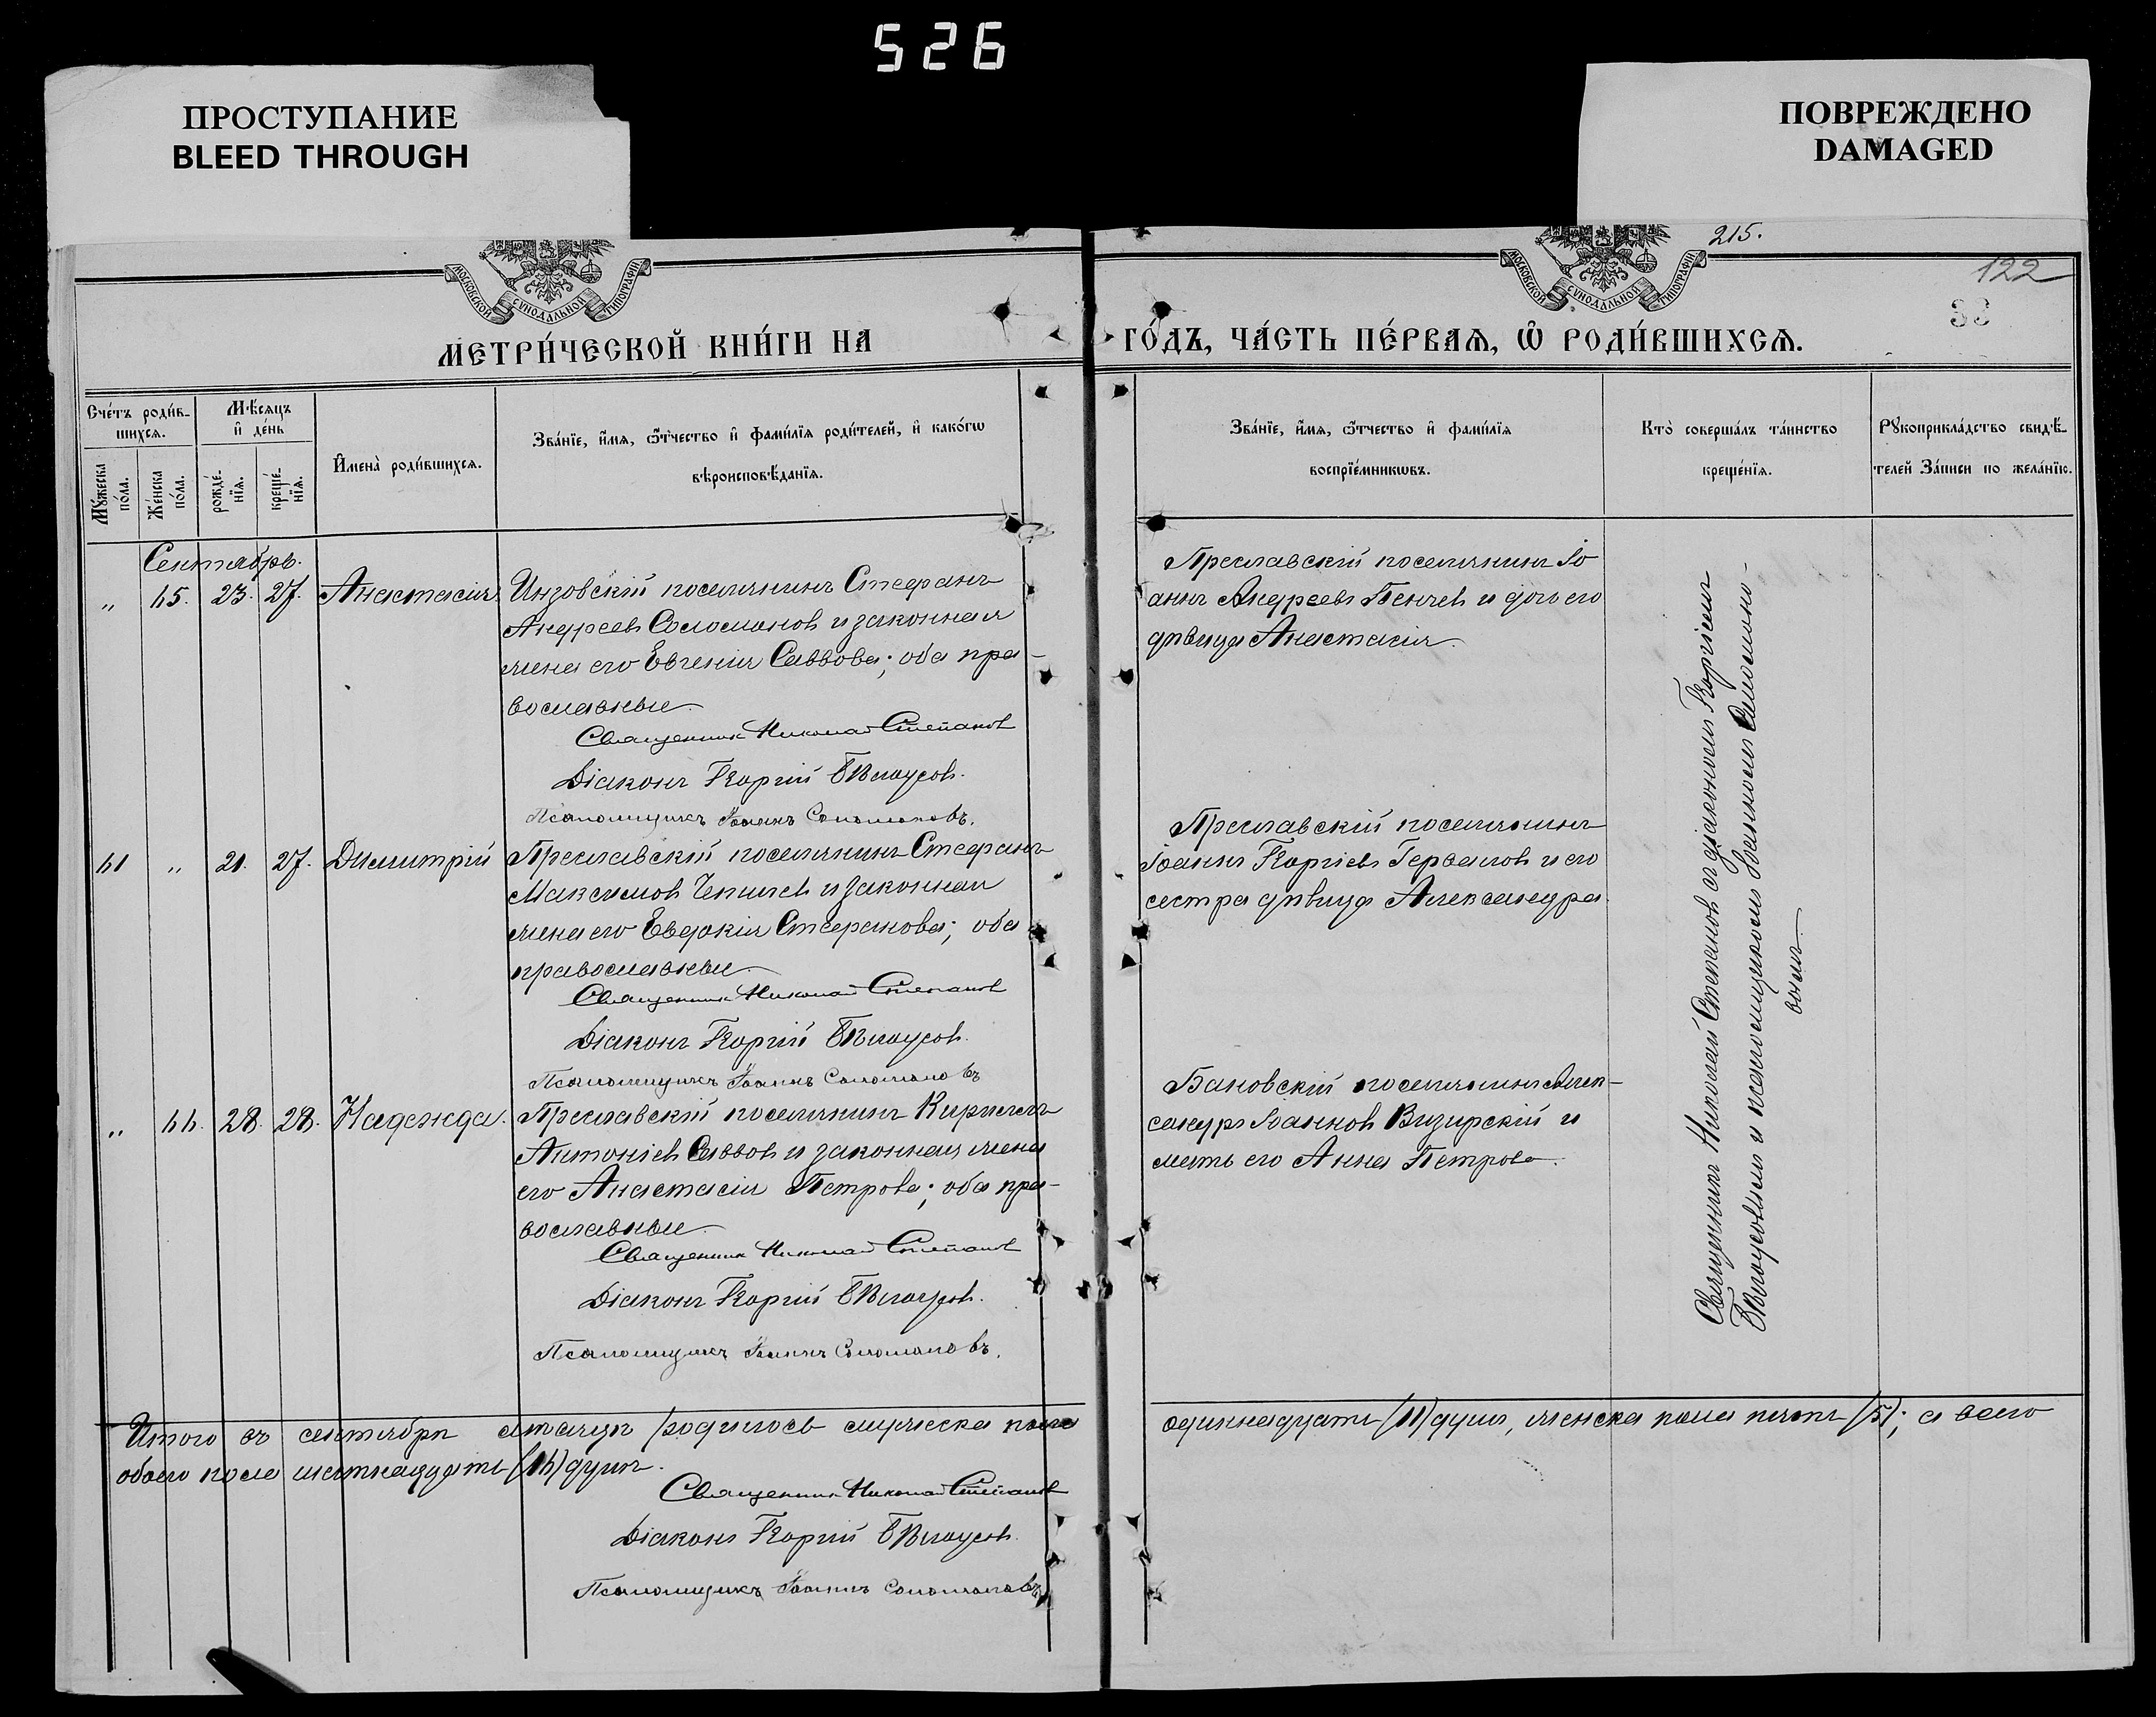 526
ПРОСТУПАНИЕ
BLEED THROUGH
ПОВРЕЖДЕНО
DAMAGED
215.
122
33
МОСКОВСКОЙ СѴНОДАЛЬНОЙ ТИПОГРАФІИ
МОСКОВСКОЙ СѴНОДАЛЬНОЙ ТИПОГРАФІИ
МЕТРИ́ЧЕСКОЙ КНИ́ГИ НА
ГО́ДЪ, ЧА́СТЬ ПЕ́РВАѦ, Ѽ РОДИ́ВШИХСѦ.
Сче́тъ роди́в-
шихсѧ.
Мꙋ́жеска по́ла.
Же́нска по́ла.
Мѣ́сѧцъ
и҆ де́нь
рожде́-
нїѧ.
креще́-
нїѧ.
И҆мена̀ роди́вшихсѧ.
Зва́нїе, и҆́мѧ, ѻ҆́тчество и҆ фами́лїѧ роди́телей, и҆ како́гѡ
вѣроисповѣ́данїѧ.
Зва́нїе, и҆́мѧ, ѻ҆́тчество и҆ фами́лїѧ
воспрїе́мникѡвъ.
Кто̀ соверша́лъ та́инство
креще́нїѧ.
Рꙋкоприкла́дство свидѣ́-
телей За́писи по жела́нїю.
Сентябрь.
„ 65. 23. 27. Анастасія.
Инзовскій поселянинъ Стефанъ
Андреевъ Соломоновъ и законная
жена его Евгенія Саввова; оба пра-
вославные.
Священникъ Николай Степановъ
Діаконъ Георгій Бѣлоусовъ.
Псаломщикъ Іоаннъ Соломоновъ.
Преславскій поселянинъ Іо
аннъ Андреевъ Пенчевъ и дочь его
дѣвица Анастасія.
61 „ 21. 27. Димитрій
Преславскій поселянинъ Стефанъ
Максимовъ Чепилевъ и законная
жена его Евдокія Стефанова; оба
православные.
Священникъ Николай Степановъ
Діаконъ Георгій Бѣлоусовъ.
Псаломщикъ Іоаннъ Соломоновъ
Преславскій поселянинъ
Іоаннъ Георгіевъ Гервасовъ и его
сестра дѣвица Александра.
„ 66. 28. 28. Надежда.
Преславскій поселянинъ Кириллъ
Антоніевъ Саввовъ и законная жена
его Анастасія Петрова; оба пра-
вославные.
Священникъ Николай Степановъ
Діаконъ Георгій Бѣлоусовъ.
Псаломщикъ Іоаннъ Соломоновъ.
Бановскій поселянинъ Алек-
сандръ Іоанновъ Визирскій и
мать его Анна Петрова.
Священникъ Николай Степановъ съ діакономъ Георгіемъ
Бѣлоусовымъ и псаломщикомъ Іоанномъ Соломоно-
вымъ.
Итого въ сентябрѣ мѣсяцѣ родилось мужеска пола одиннадцать (11) душъ, женска пола пять (5); а всего
обоего пола шестнадцать (16) душъ.
Священникъ Николай Степановъ
Діаконъ Георгій Бѣлоусовъ.
Псаломщикъ Іоаннъ Соломоновъ